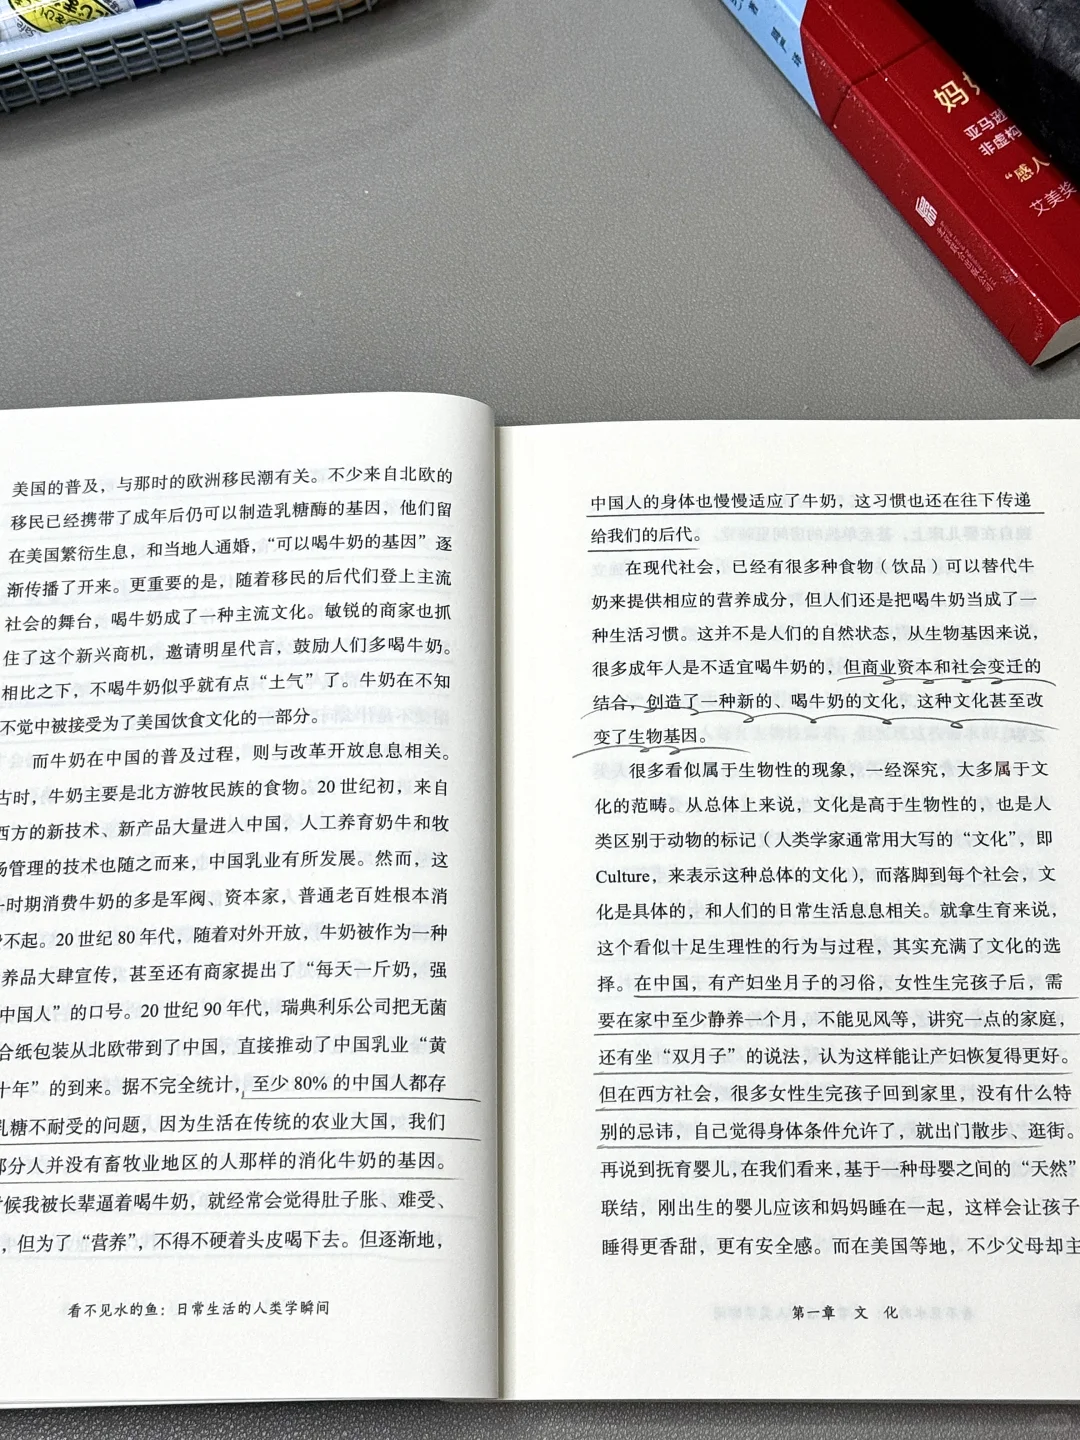 妈
亚马逊
非虚构
“感人
艾美奖
美国的普及，与那时的欧洲移民潮有关。不少来自北欧的
移民已经携带了成年后仍可以制造乳糖酶的基因，他们留
在美国繁衍生息，和当地人通婚，“可以喝牛奶的基因”逐
渐传播了开来。更重要的是，随着移民的后代们登上主流
社会的舞台，喝牛奶成了一种主流文化。敏锐的商家也抓
住了这个新兴商机，邀请明星代言，鼓励人们多喝牛奶。
相比之下，不喝牛奶似乎就有点“土气”了。牛奶在不知
不觉中被接受为了美国饮食文化的一部分。
而牛奶在中国的普及过程，则与改革开放息息相关。
古时，牛奶主要是北方游牧民族的食物。20 世纪初，来自
西方的新技术、新产品大量进入中国，人工养育奶牛和牧
场管理的技术也随之而来，中国乳业有所发展。然而，这
时期消费牛奶的多是军阀、资本家，普通老百姓根本消
不起。20 世纪 80 年代，随着对外开放，牛奶被作为一种
养品大肆宣传，甚至还有商家提出了“每天一斤奶，强
中国人”的口号。20 世纪 90 年代，瑞典利乐公司把无菌
合纸包装从北欧带到了中国，直接推动了中国乳业“黄
十年”的到来。据不完全统计，至少 80% 的中国人都存
乳糖不耐受的问题，因为生活在传统的农业大国，我们
部分人并没有畜牧业地区的人那样的消化牛奶的基因。
候我被长辈逼着喝牛奶，就经常会觉得肚子胀、难受、
，但为了“营养”，不得不硬着头皮喝下去。但逐渐地，
看不见水的鱼：日常生活的人类学瞬间
中国人的身体也慢慢适应了牛奶，这习惯也还在往下传递
给我们的后代。
在现代社会，已经有很多种食物（饮品）可以替代牛
奶来提供相应的营养成分，但人们还是把喝牛奶当成了一
种生活习惯。这并不是人们的自然状态，从生物基因来说，
很多成年人是不适宜喝牛奶的，但商业资本和社会变迁的
结合，创造了一种新的、喝牛奶的文化，这种文化甚至改
变了生物基因。
很多看似属于生物性的现象，一经深究，大多属于文
化的范畴。从总体上来说，文化是高于生物性的，也是人
类区别于动物的标记（人类学家通常用大写的“文化”，即
Culture，来表示这种总体的文化），而落脚到每个社会，文
化是具体的，和人们的日常生活息息相关。就拿生育来说，
这个看似十足生理性的行为与过程，其实充满了文化的选
择。在中国，有产妇坐月子的习俗，女性生完孩子后，需
要在家中至少静养一个月，不能见风等，讲究一点的家庭，
还有坐“双月子”的说法，认为这样能让产妇恢复得更好。
但在西方社会，很多女性生完孩子回到家里，没有什么特
别的忌讳，自己觉得身体条件允许了，就出门散步、逛街。
再说到抚育婴儿，在我们看来，基于一种母婴之间的“天然”
联结，刚出生的婴儿应该和妈妈睡在一起，这样会让孩子
睡得更香甜，更有安全感。而在美国等地，不少父母却主
第一章 文 化